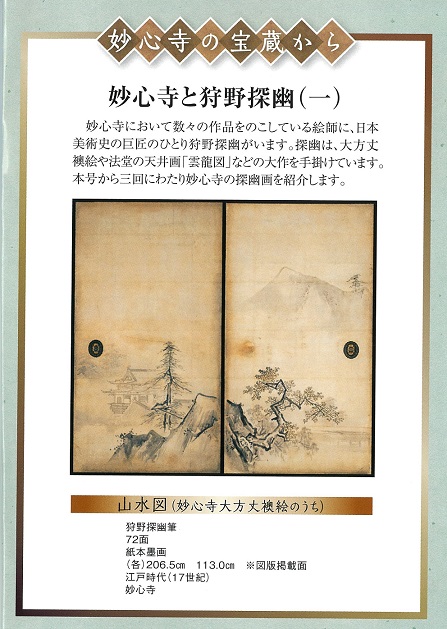 妙心寺の宝蔵から
妙心寺と狩野探幽(一)
妙心寺において数々の作品をのこしている絵師に、日本
美術史の巨匠のひとり狩野探幽がいます。探幽は、大方丈
襖絵や法堂の天井画「雲龍図」などの大作を手掛けています。
本号から三回にわたり妙心寺の探幽画を紹介します。
山水図(妙心寺大方丈襖絵のうち)
狩野探幽筆
72面
紙本墨画
(各)206.5㎝ 113.0㎝ ※図版掲載面
江戸時代(17世紀)
妙心寺